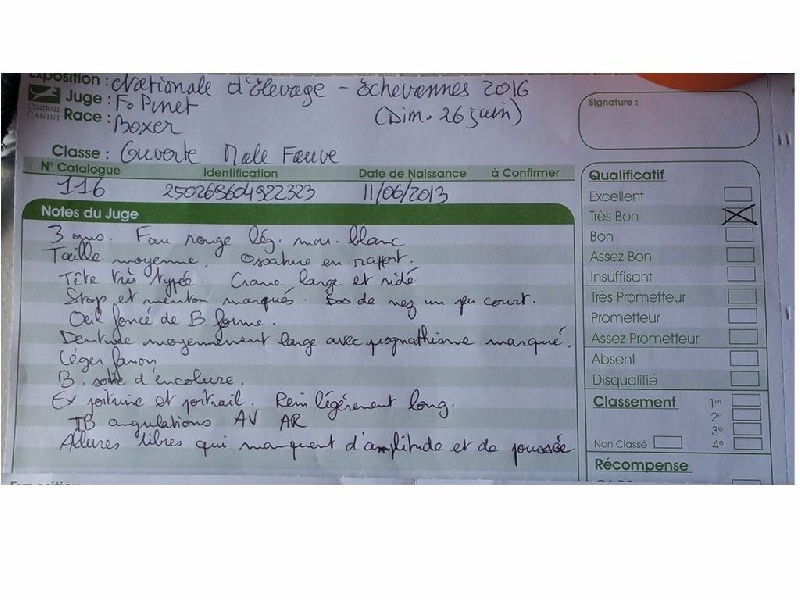 Exposition : Nationale d'Elevage - Echevannes 2016
Juge : Fo Pinet (Dim. 26 juin)
CENTRALE CANINE
Race : Boxer
Classe : Ouverte Male Fauve
N° Catalogue Identification Date de Naissance à Confirmer
116 250269604922323 11/06/2013
Notes du Juge
3 ans. Fau rouge lég. man. blanc
Taille moyenne. Ossature en rapport.
Tête très typée. Crane large et ridé
Stop et menton marqués. Bas de nez un peu court.
Oeil foncé de B forme.
Denture moyennement large avec prognathisme marqué.
Léger fanon
B. sortie d'encolure.
Ex poitrine et poitrail. Rein légèrement long.
TB angulations AV AR
Allures libres qui manquent d'amplitude et de poussée
Signature :
Qualificatif
Excellent
Très Bon
Bon
Assez Bon
Insuffisant
Très Prometteur
Prometteur
Assez Prometteur
Absent
Disqualifié
Classement 1er
2e
3e
Non Classé 4e
Récompense